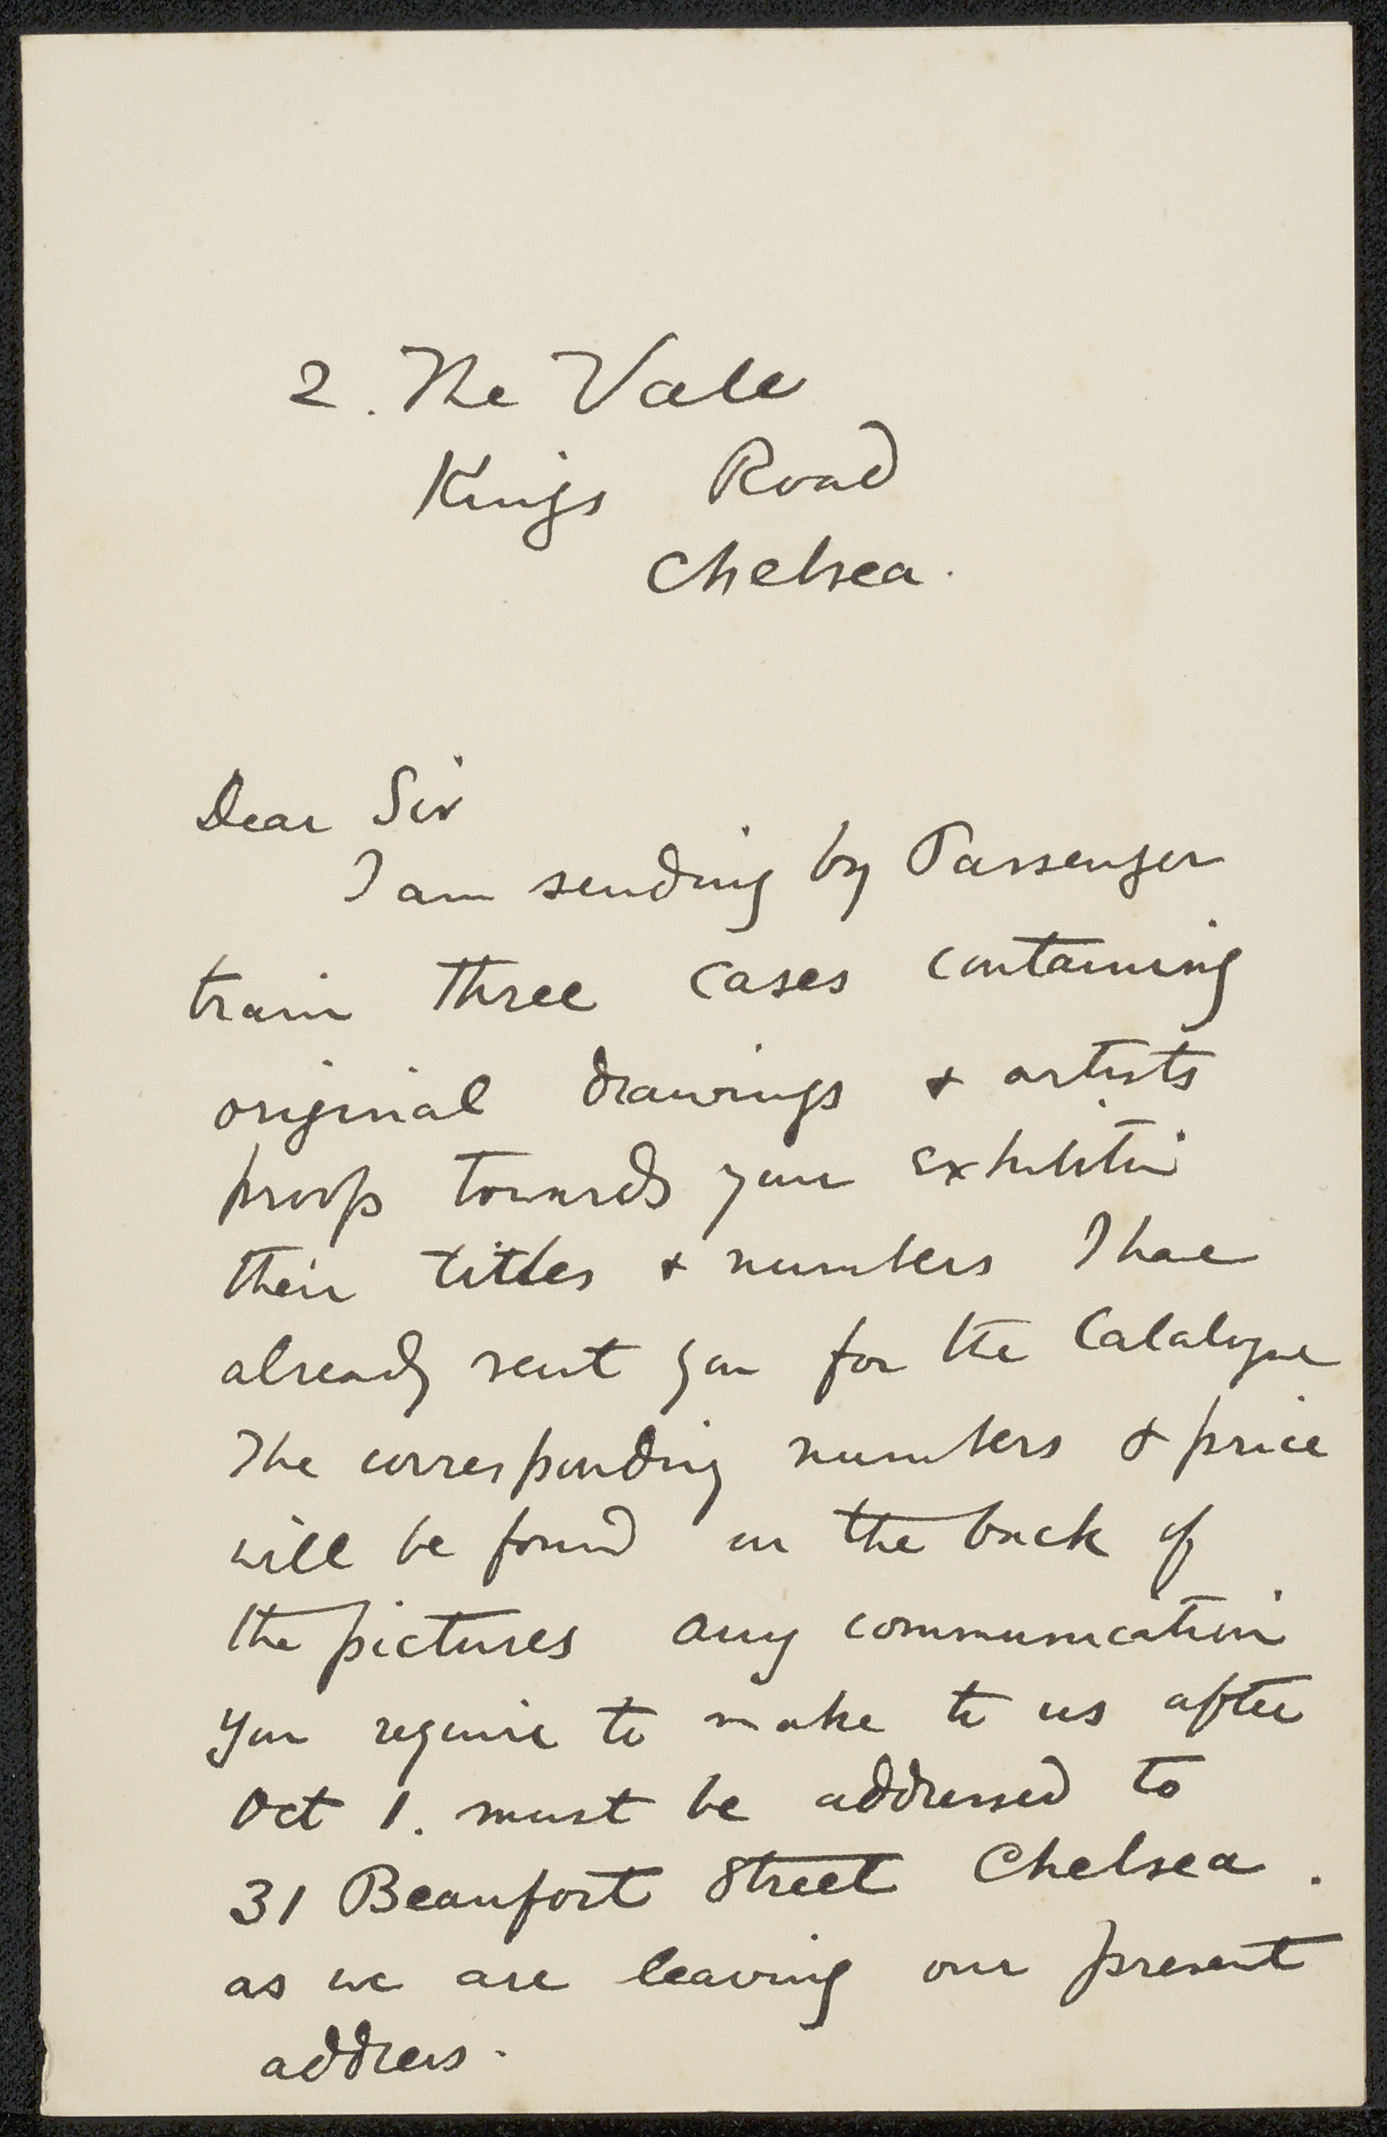 2. The Vale
Kings Road
Chelsea.
Dear Sir
I am sending by Passenger
train three cases containing
original drawings & artists
proofs towards your exhibition
their titles & numbers I have
already sent you for the Catalogue
The corresponding numbers & price
will be found on the back of
the pictures any communication
you require to make to us after
Oct 1. must be addressed to
31 Beaufort Street Chelsea.
as we are leaving our present
address.